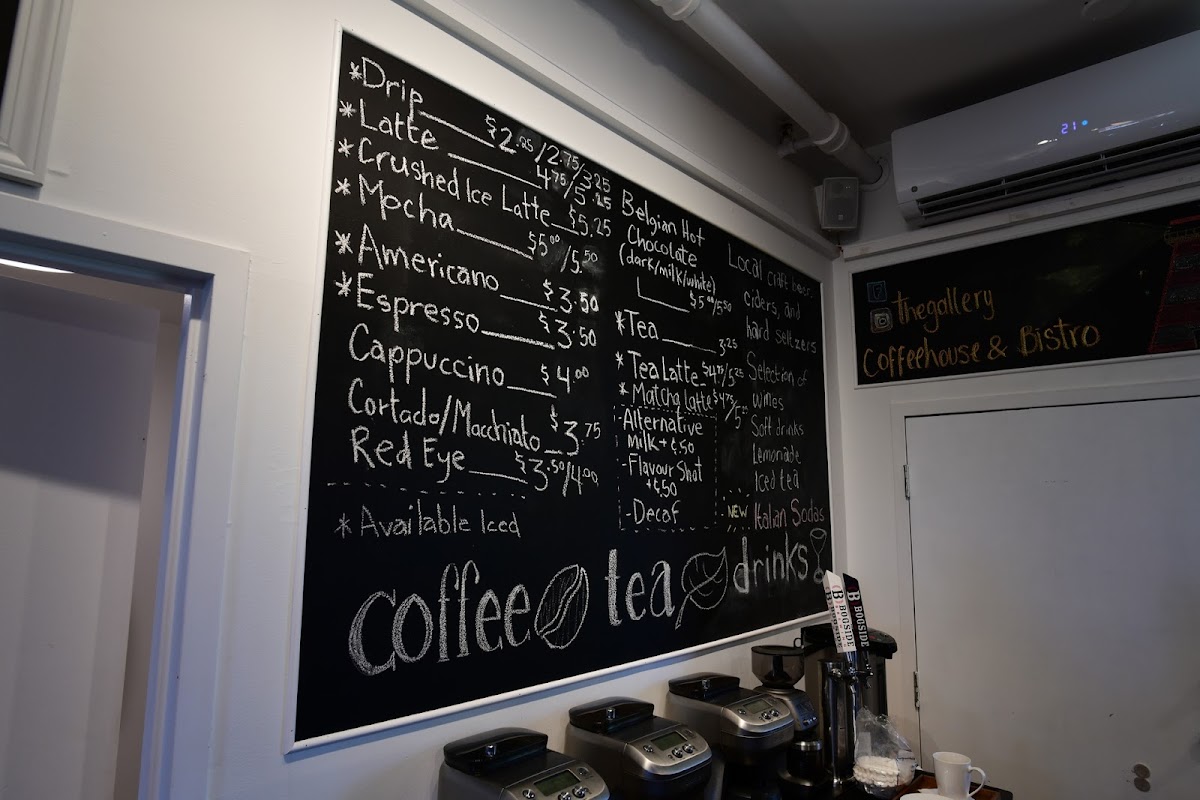 *Drip $2.25/2.75/3.25
*Latte 4.75/5.25
*Crushed Ice Latte $5.25
*Mocha $5.00/5.50
*Americano $3.50
*Espresso $3.50
Cappuccino $4.00
Cortado/Macchiato $3.75
Red Eye $3.50/4.00
*Available Iced
Belgian Hot
Chocolate
(dark/milk/white)
$5.00/5.50
*Tea 3.25
*Tea Latte $4.75/5.25
*Matcha latte $4.75/5.25
-Alternative
Milk + ¢.50
-Flavour Shot
+¢.50
-Decaf
Local craft beer,
ciders, and
hard seltzers
Selection of
wines
Soft drinks
Lemonade
Iced tea
-NEW- Italian Sodas
coffee tea drinks
21
thegallery
Coffeehouse & Bistro
B BOGSIDE
B BOGSIDE